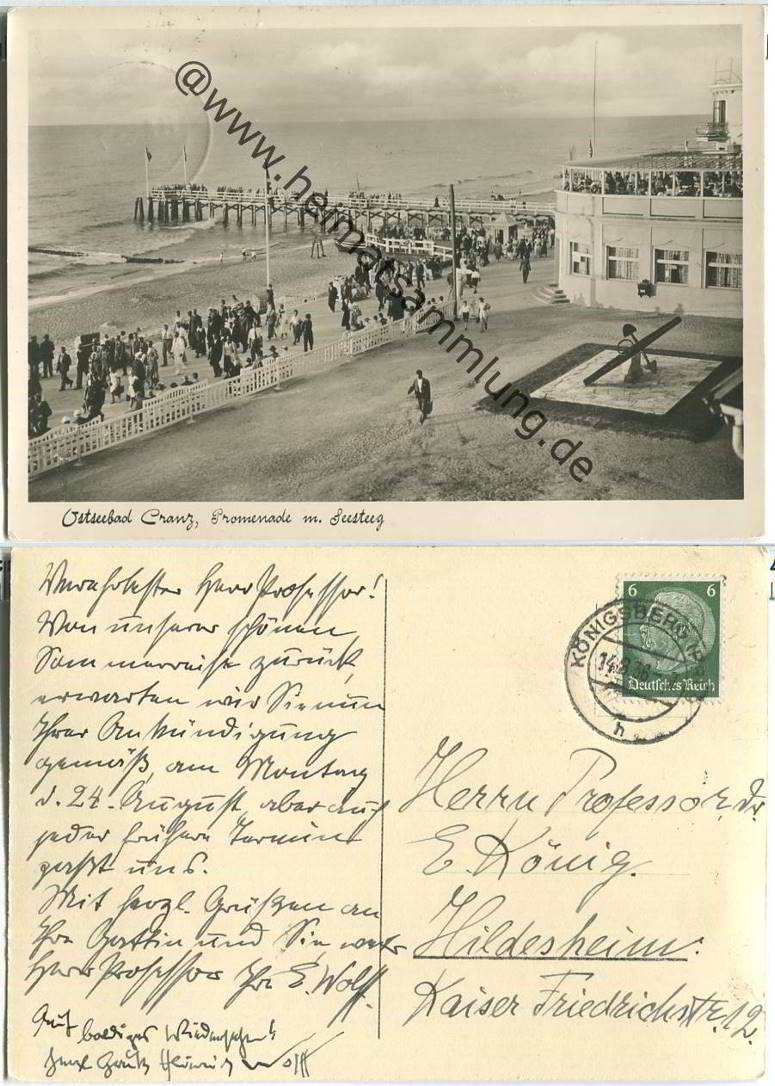 @www.heimatsammlung.de
Ostseebad Cranz, Promenade m. Seesteg
Verehrtester Herr Professor!
Von unserer schönen
Sommerreise zurück,
erwarten wir Sie nun
Ihrer Ankündigung
gemäß, am Montag
d. 24. August, aber auch
jeder frühere Termin
paßt uns.
Mit herzl. Grüßen an
Ihre Gattin und Sie, werter
Herr Professor Ihr E. Wolff.
Auf baldiges Wiedersehen!
Heinrich Wolff
6 6
Deutsches Reich
KÖNIGSBERG
h
Herrn Professor Dr.
E. König.
Hildesheim.
Kaiser Friedrichstr. 12.